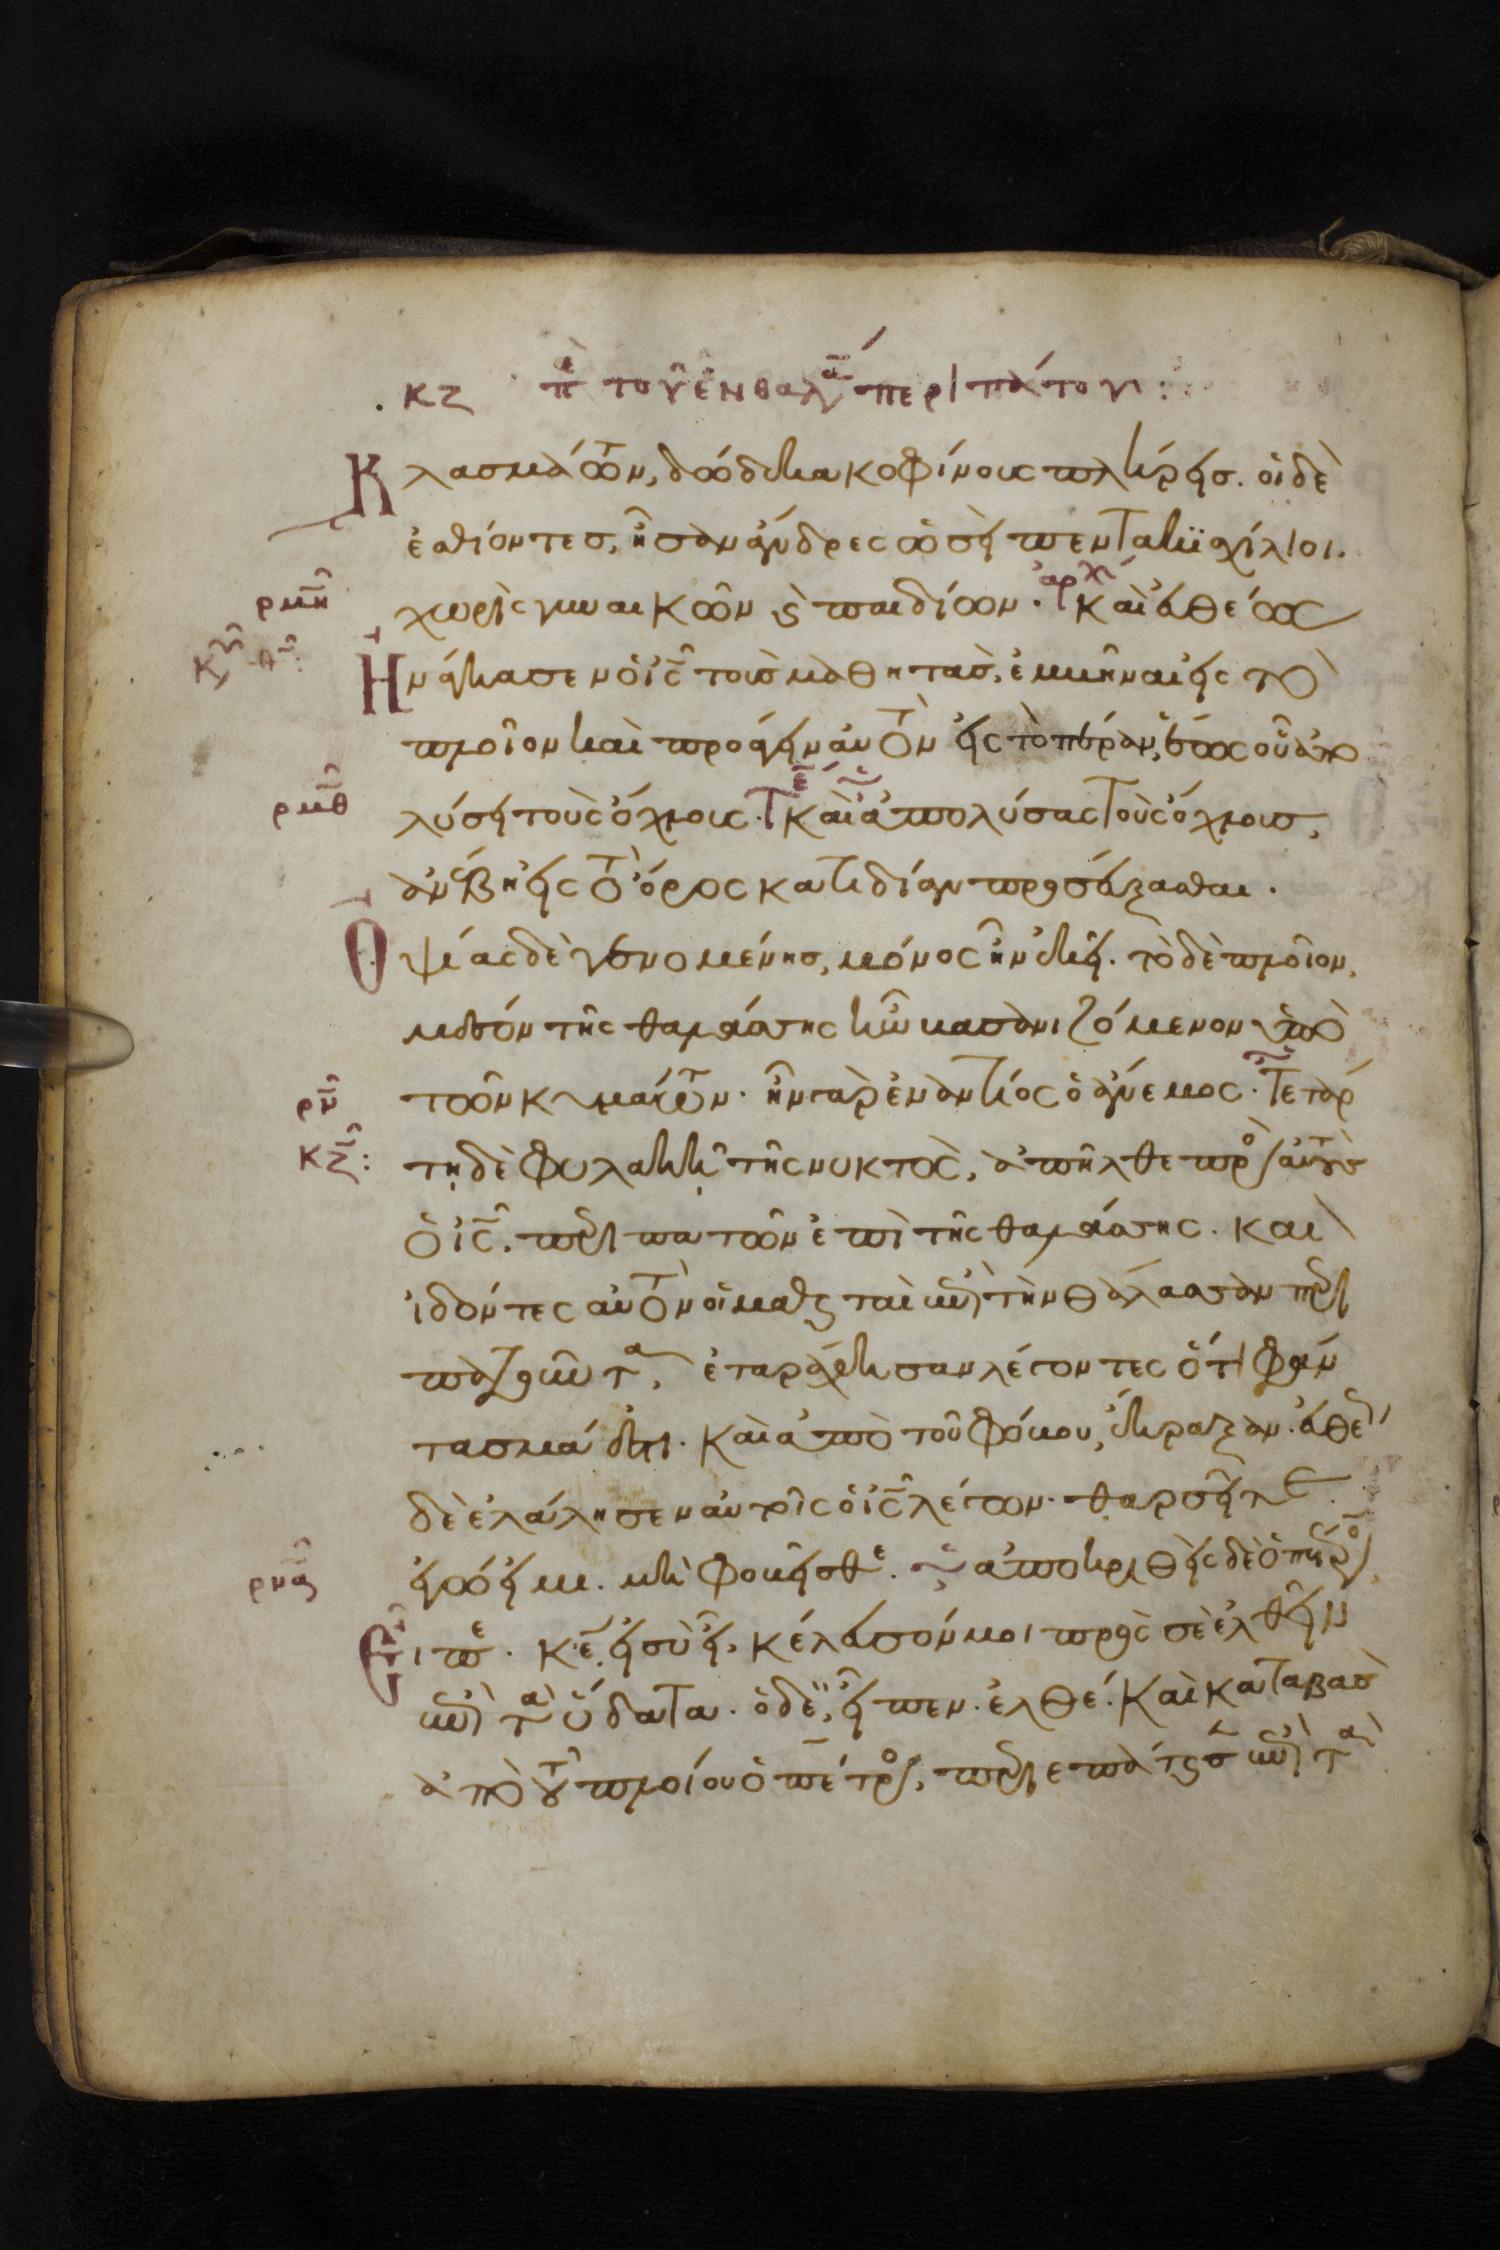 κζ πε τοῦ ἐν θαλ περιπάτου:
Κλασμάτων, δώδεκα κοφίνους πλήρεισ. οἱ δὲ
ἐσθίοντεσ, ἦσαν ἄνδρες ὡσεὶ πεντακισχίλιοι.
ρμη χωρὶς γυναικῶν καὶ παιδίων. ἀρχ Καὶ εὐθέως
κζ Ἠνάγκασεν ὁ ἰς τοὺσ μαθητὰσ, ἐμβῆναι εἰς τὸ
πλοῖον καὶ προάγειν αὐτὸν εἰς τὸ πέραν, ἕως οὗ ἀπο
ρμθ λύσει τοὺς ὄχλους. Καὶ ἀπολύσας τοὺς ὄχλουσ,
ἀνέβη εἰς τὸ ὄρος κατιδίαν προσεύξασθαι.
Ὀψίας δὲ γενομένησ, μόνος ἦν ἐκεῖ. τὸ δὲ πλοῖον,
μέσον τῆς θαλάσσης ἦν βασανιζόμενον ὑπὸ
ρν τῶν κυμάτων. ἦν γὰρ ἐναντίος ὁ ἄνεμος. Τετάρ
κζ: τῃ δὲ φυλακῇ τῆς νυκτὸς, ἀπῆλθε πρὸς αὐτοὺς
ὁ ἰς, περιπατῶν ἐπὶ τῆς θαλάσσης. και
ἰδόντες αὐτὸν οἱ μαθηταὶ ἐπὶ τὴν θάλασσαν περι
πατοῦντα, ἐταράχθησαν λέγοντες ὅτι φάν
τασμά ἐστι. Καὶ ἀπὸ τοῦ φόβου, ἔκραξαν. εὐθέως
δὲ ἐλάλησεν αὐτοῖς ὁ ἰς λέγων. θαρσεῖτε
ρνα ἐγώ εἰμι. μὴ φοβεῖσθε. ἀποκριθεὶς δὲ ὁ πέτρος
Εἶπε. κε, εἰ σὺ εἶ, κέλευσόν μοι πρὸς σὲ ἐλθεῖν
ἐπὶ τὰ ὕδατα. ὁ δὲ, εἶπεν. ἐλθέ. Καὶ καταβὰσ
ἀπὸ τοῦ πλοίου ὁ πέτρος, περιεπάτησεν ἐπὶ τὰ